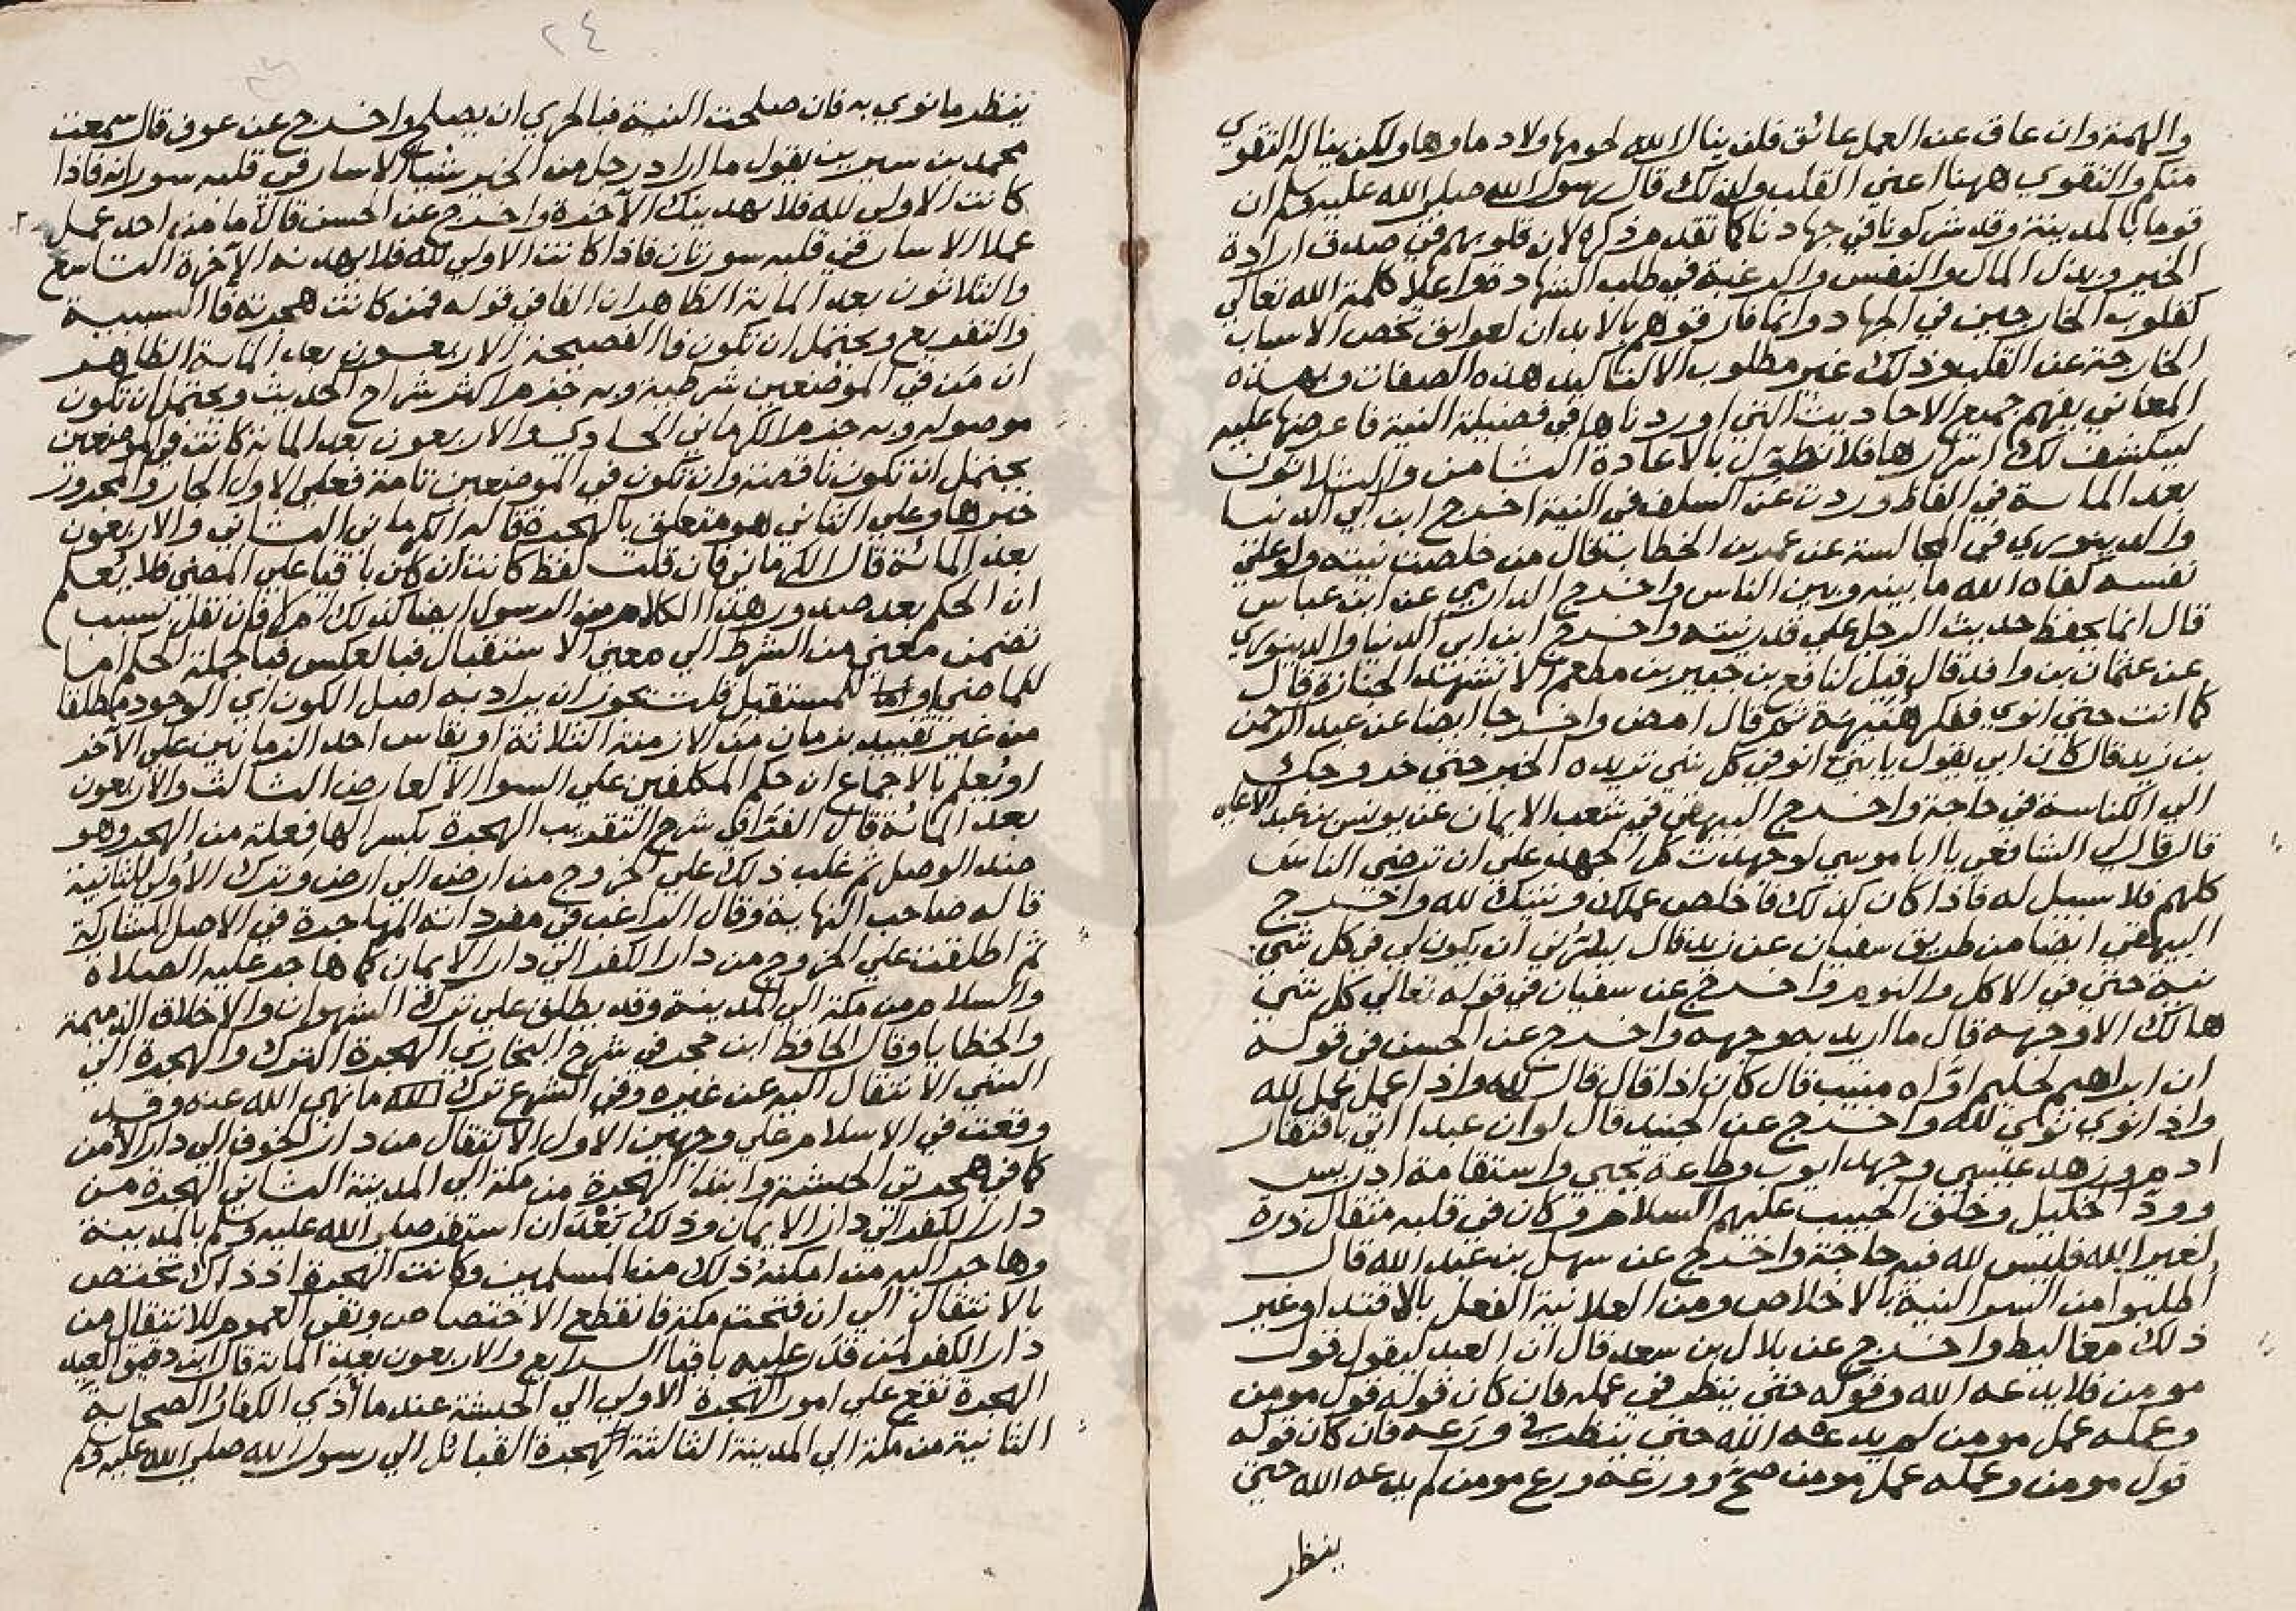 والهمة وان عاق عن العمل عائق فلن ينال الله لحومها ولا دماوها ولكن يناله التقوي
منكم والتقوي ههنا اعني القلب ولذلك قال رسول الله صلي الله عليه وسلم ان
قوما بالمدينة وقد شركونا في جهادنا كما تقدم ذكره لان قلوبهم في صدق ارادة
الخير وبذل المال والنفس والرغبة في طلب الشهادة واعلا كلمة الله تعالي
كقلوب الخارجين في الجهاد وانما فارقوهم بالابدان لعوايق تخص الاسباب
الخارجة عن القلب وذلك غير مطلوب الا لتاكيد هذه الصفات وبهذه
المعاني يفهم جميع الاحاديث التي اوردناها في فضيلة النية فاعرضها عليه
لينكشف لك اسرارها فلا نطول بالاعادة الثامن والثلاثون
بعد الماية في الفاظ وردت عن السلف في النية اخرج ابن ابي الدنيا
والدينوري في المجالسة عن عمر بن الخطاب قال من خلصت نيته ولو علي
نفسه كفاه الله ما بينه وبين الناس واخرج الدارمي عن ابن عباس
قال انما يحفظ حديث الرجل علي قدر نيته واخرج ابن ابي الدنيا والدينوري
عن عثمان بن واقد قال قيل لنافع بن جبير بن مطعم الا تشهد الجنازة قال
كما انت حتي انوي ففكر هنيهة ثم قال امض واخرجا ايضا عن عبد الرحمن
بن زيد قال كان ابي يقول يا بني انو في كل شي تريده الخير حتي خروجك
الي الكناسة في حاجة واخرج البيهقي في شعب الايمان عن يونس بن عبد الاعلي
قال قال لي الشافعي يا ابا موسي لو جهدت كل الجهد علي ان ترضي الناس
كلهم فلا سبيل له فاذا كان كذلك فاخلص عملك ونيتك لله واخرج
البيهقي ايضا من طريق سفيان عن زبيد قال يسرني ان يكون لي في كل شي
نية حتي في الاكل والنوم واخرج عن سفيان في قوله تعالي كل شي
هالك الا وجهه قال ما اريد به وجهه واخرج عن الحسن في قوله
ان ابراهيم لحليم اواه منيب قال كان اذا قال قال لله واذا عمل عمل لله
واذا نوي نوي لله واخرج عن الجنيد قال لو ان عبدا اتي بافتقار
ادم وزهد عيسي وجهد ايوب وطاعة يحيي واستقامة ادريس
وود الخليل وخلق الحبيب عليهم السلام وكان في قلبه مثقال ذرة
لغير الله فليس لله فيه حاجة واخرج عن سهل بن عبد الله قال
اطلبوا من السر النية بالاخلاص ومن العلانية الفعل بالاقتدا وغير
ذلك مغاليط واخرج عن بلال بن سعد قال ان العبد ليقول قول
مومن فلا يدعه الله وقوله حتي ينظر في عمله فان كان قوله قول مومن
وعمله عمل مومن لم يدعه الله حتي ينظر في ورعه فان كان قوله
قول مومن وعمله عمل مومن صح وورعه ورع مومن لم يدعه الله حتي
ينظر
٢٤
ينظر ما نوي به فان صلحت النية فبالحري ان يصلح واخرج عن عوف قال سمعت
محمد بن سيرين يقول ما اراد رجل من الخير شيا الا سار في قلبه سورتان فاذا
كانت الاولي لله فلا يهدينك الآخرة واخرج عن الحسن قال ما من احد عمل
عملا الا سار في قلبه سورتان فاذا كانت الاولي لله فلا يهدنه الآخرة التاسع
والثلاثون بعد الماية الظاهر ان الفا في قوله فمن كانت هجرته فا السببية
والتفريع ويحتمل ان تكون فا الفصيحة الاربعون بعد الماية الظاهر
ان من في الموضعين شرطية وبه جزم اكثر شراح الحديث ويحتمل ان تكون
موصوله وبه جزم الكرماني الحادي والاربعون بعد الماية كانت في الموضعين
يحتمل ان تكون ناقصة وان تكون في الموضعين تامة فعلي الاول الجار والمجرور
خبرها وعلي الثاني هو متعلق بالهجرة قاله الكرماني الثاني والاربعون
بعد المائة قال الكرماني فان قلت لفظ كانت ان كان باقيا علي المضي فلا يعلم
ان الحكم بعد صدور هذا الكلام من الرسول ايضا كذلك ام لا فان نقل بسبب
تضمن معني من الشرط الي معني الاستقبال فبالعكس فبا الجملة الحكم اما
للماضي او للمستقبل قلت يجوز ان يراد به اصل الكون اي الوجود مطلقا
من غير تقييد بزمان من الازمنة الثلاثة او يقاس احد الزمانين علي الآخر
او يعلم بالاجماع ان حكم المكلفين علي السوا الا لعارض الثالث والاربعون
بعد المائة قال العراقي في شرح التقريب الهجرة بكسر الها فعلة من الهجر وهو
ضد الوصل ثم غلب ذلك علي الخروج من ارض الي ارض وترك الاولي للثانية
قاله صاحب النهاية وقال الراغب في مفرداته المهاجرة في الاصل المشاركة
ثم اطلقت علي الخروج من دار الكفر الي دار الايمان كما هاجر عليه الصلاة
والسلام من مكة الي المدينة وقد يطلق علي ترك الشهوات والاخلاق الذميمة
والخطايا وقال الحافظ ابن حجر في شرح البخاري الهجرة الترك والهجرة الي
الشي الانتقال اليه عن غيره وفي الشرع ترك ما نهي الله عنه وقد
وقعت في الاسلام علي وجهين الاول الانتقال من دار الخوف الي دار الامن
كما في هجرتي الحبشة وابتدا الهجرة من مكة الي المدينة الثاني الهجرة من
دار الكفر الي دار الايمان وذلك بعد ان استقر صلي الله عليه وسلم بالمدينة
وهاجر اليه من امكنه ذلك من المسلمين وكانت الهجرة اذ ذاك تختص
بالانتقال الي ان فتحت مكة فانقطع الاختصاص وبقي العموم للانتقال من
دار الكفر لمن قدر عليه باقيا الرابع والاربعون بعد الماية قال ابن دقيق العيد
الهجرة تقع علي امور الهجرة الاولي الي الحبشة عند ما أذي الكفار الصحابة
الثانية من مكة الي المدينة الثالثة الهجرة القبائل الي رسول الله صلي الله عليه وسلم